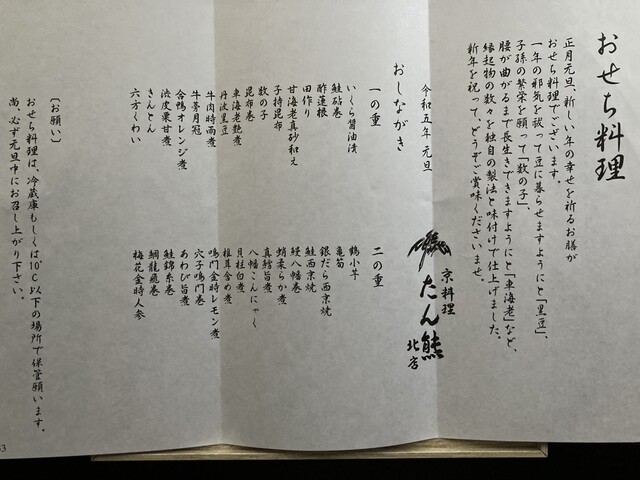 おせち料理
正月元旦、新しい年の幸せを祈るお膳が
おせち料理でございます。
一年の邪気を祓って豆に暮らせますようにと「黒豆」、
子孫の繁栄を願って「数の子」、
腰が曲がるまで長生きできますようにと「車海老」など、
縁起物の数々を独自の製法と味付けで仕上げました。
新年を祝って、どうぞご賞味くださいませ。
令和五年 元旦
京料理
たん熊
北店
おしながき
一の重
いくら醤油漬
鮭砧巻
酢蓮根
田作り
甘海老真砂和え
子持昆布
数の子
昆布巻
車海老艶煮
丹波黒豆
牛肉時雨煮
牛蒡月冠
合鴨オレンジ煮
渋皮栗甘煮
きんとん
六方くわい
二の重
鶴小芋
亀筍
銀だら西京焼
鮭西京焼
鰻八幡巻
蛸柔らか煮
真鱈旨煮
八幡こんにゃく
貝柱白煮
椎茸含め煮
鳴門金時レモン煮
穴子鳴門巻
あわび旨煮
鮭錦糸巻
鯛龍飛巻
梅花金時人参
〔お願い〕
おせち料理は、冷蔵庫もしくは10℃以下の場所で保管願います。
尚、必ず元旦中にお召し上がり下さい。